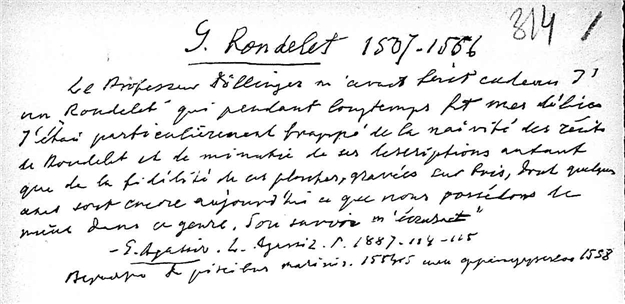 314
G. Rondelet 1507-1566
Le Professeur Döllinger m'avait fait cadeau d'
un "Rondelet" qui pendant longtemps fit mes délices
J'étais particulièrement frappé de la naïvité des récits
de Rondelet et de minutie de ses descriptions autant
que de la fidélité de ces planches, gravées sur bois, dont quelques
unes sont encore aujourd'hui ce que nous possédons de
même dans ce genre. Son savoir m'écrasait"
- E. Agassiz. L. Agassiz. P. 1887. 114-115
de piscibus marinis. 1554-5 1558